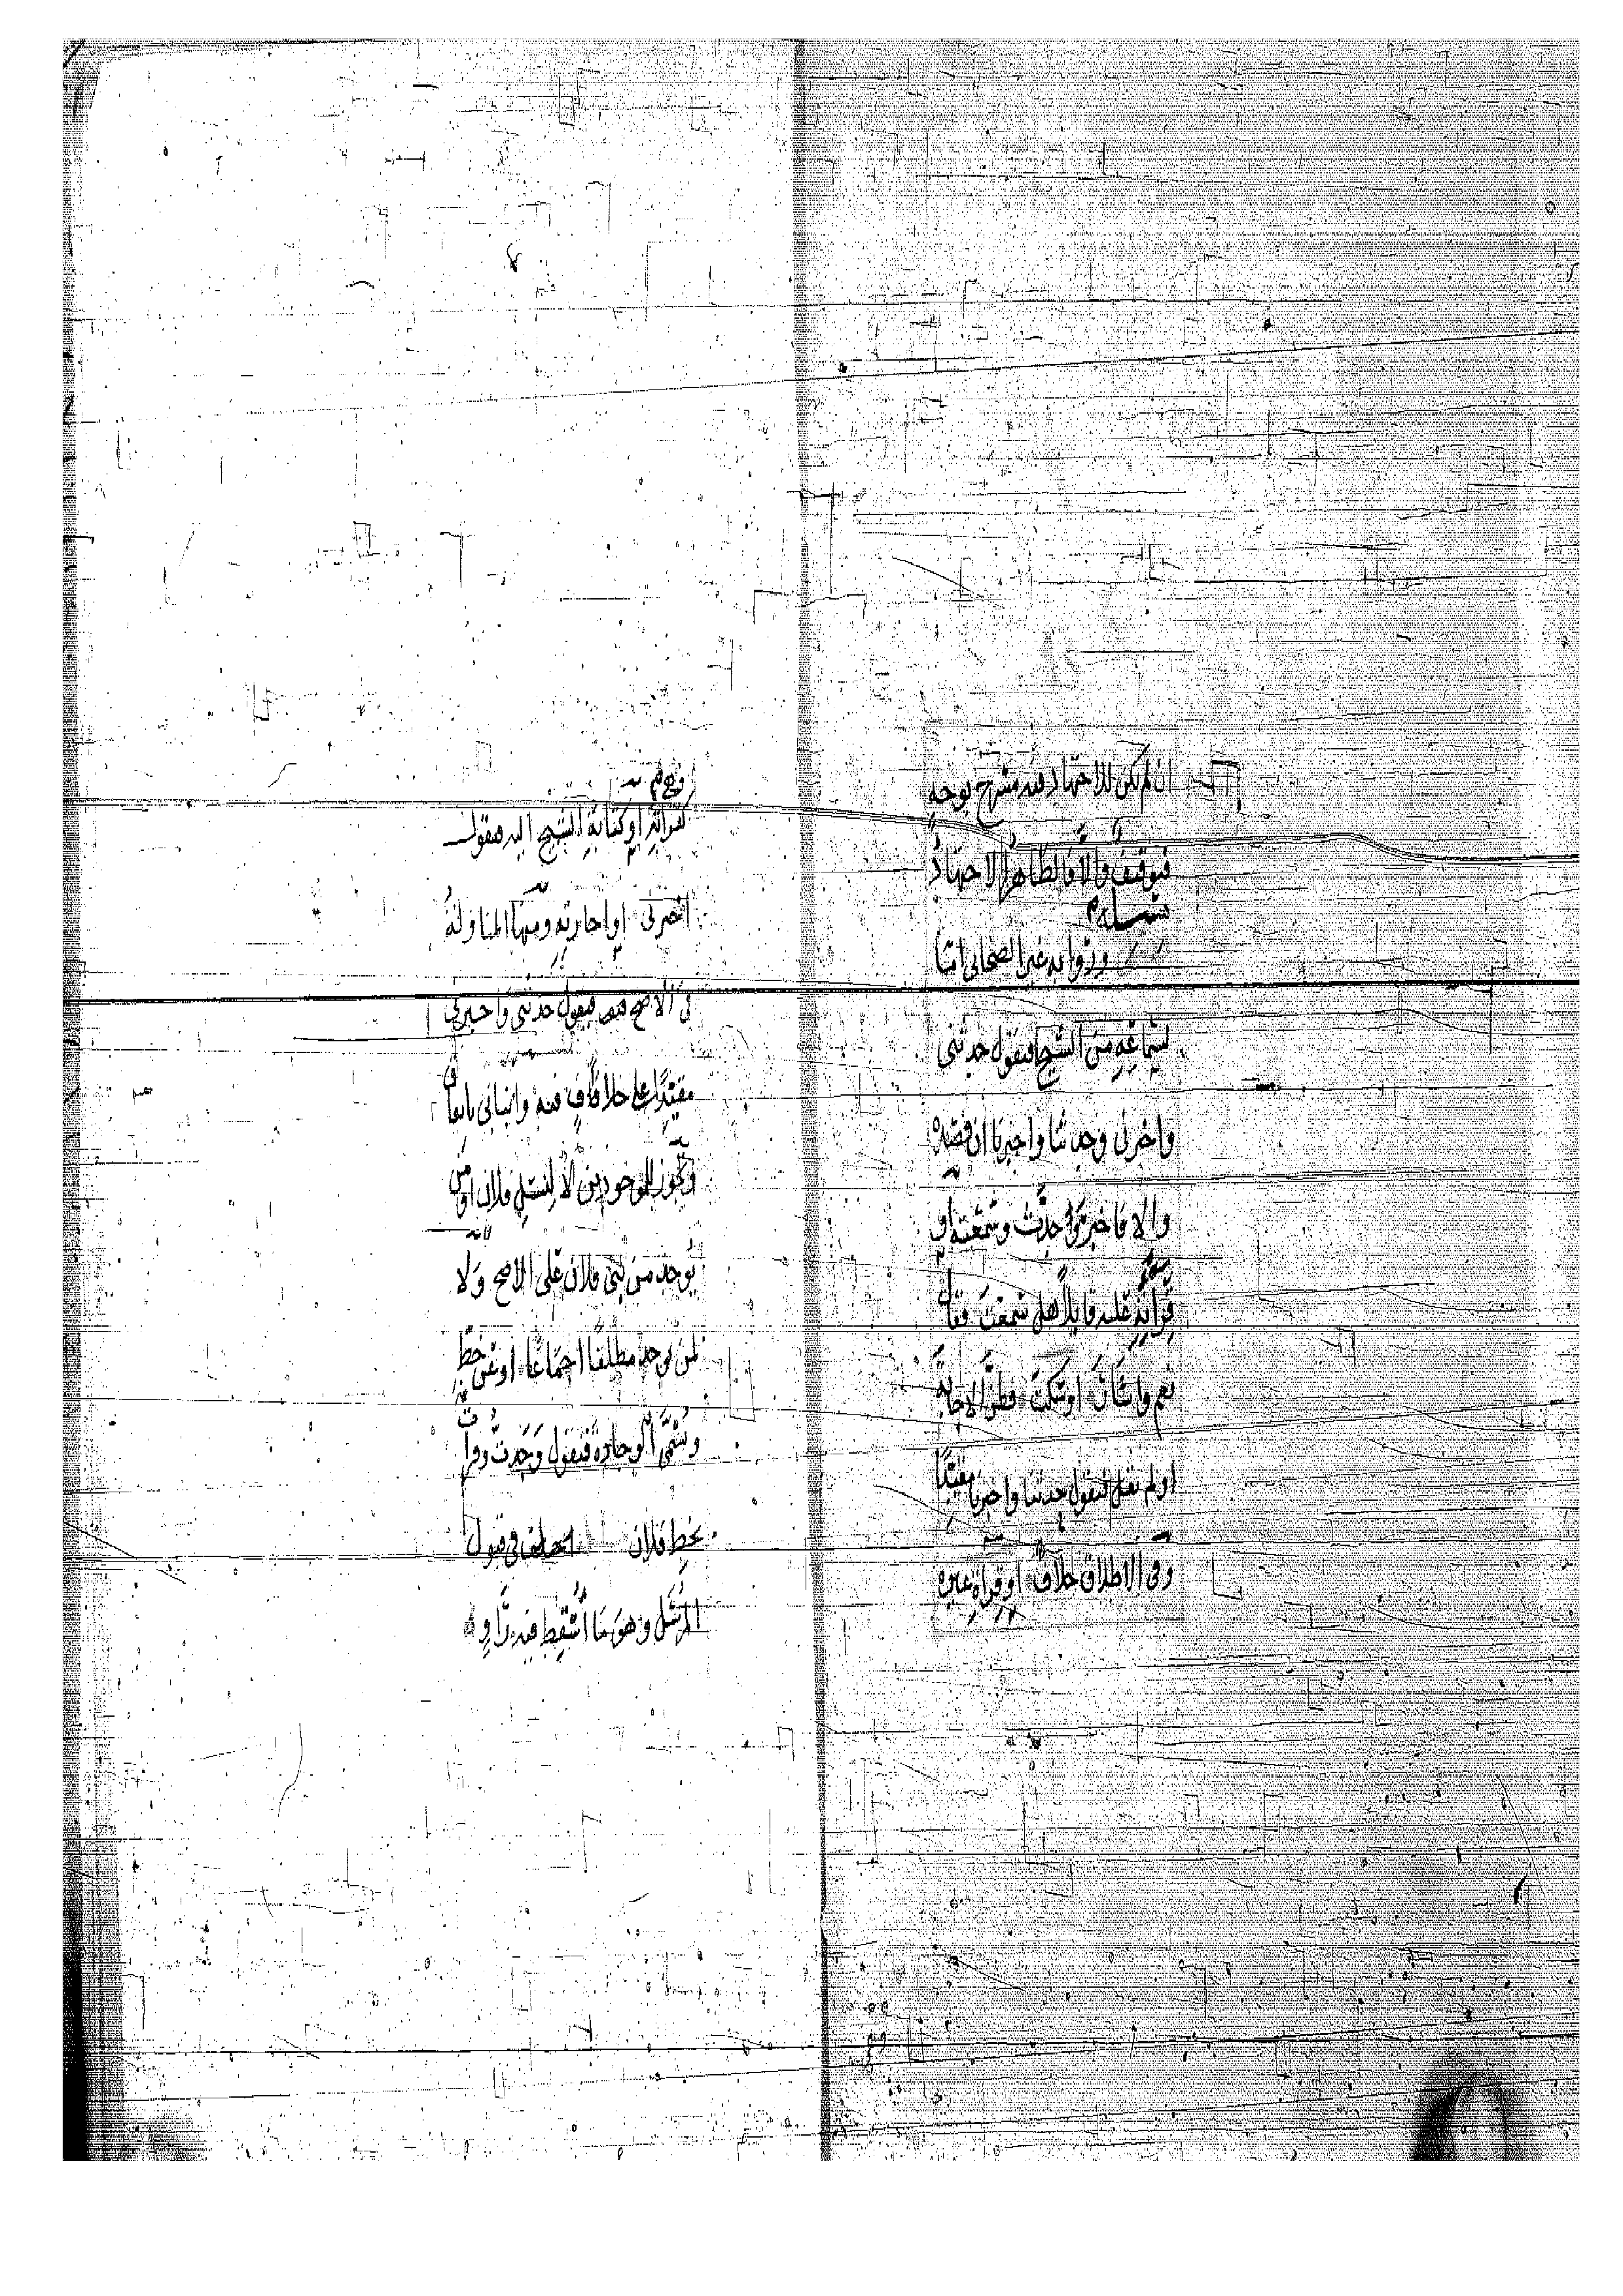 ان لم يكن للاجتهاد فيه مسرح بوجه
فتوقيف والا فالظاهر الاجتهاد
مسئلة
ورواية غير الصحابي اما
لسماعه من الشيخ فيقول حدثني
واخبرني وحدثنا واخبرنا ان قصده
والا فاخبر وحدث وسمعته او
قراته عليه قايلا هل سمعت فقال
نعم واشار او سكت فظن الاجابة
او لم يقل فيقول حدثنا واخبرنا مقيدا
وفي الاطلاق خلاف او قراة غيره
كقراته او كتابة الشيخ اليه فيقول
اخبرني او اجازته ومنها المناولة
في الاصح فيقول حدثني واخبرني
مقيدا على خلاف فيه وانباني باتفاق
وتجوز للموجودين لا لنسل فلان او من
يوجد من بني فلان على الاصح ولا
لمن يوجد مطلقا اجماعا او عن خط
وتسمى الوجادة فيقول وجدت وقرات
بخط فلان في قبول
المرسل وهو ما اسقط فيه راو